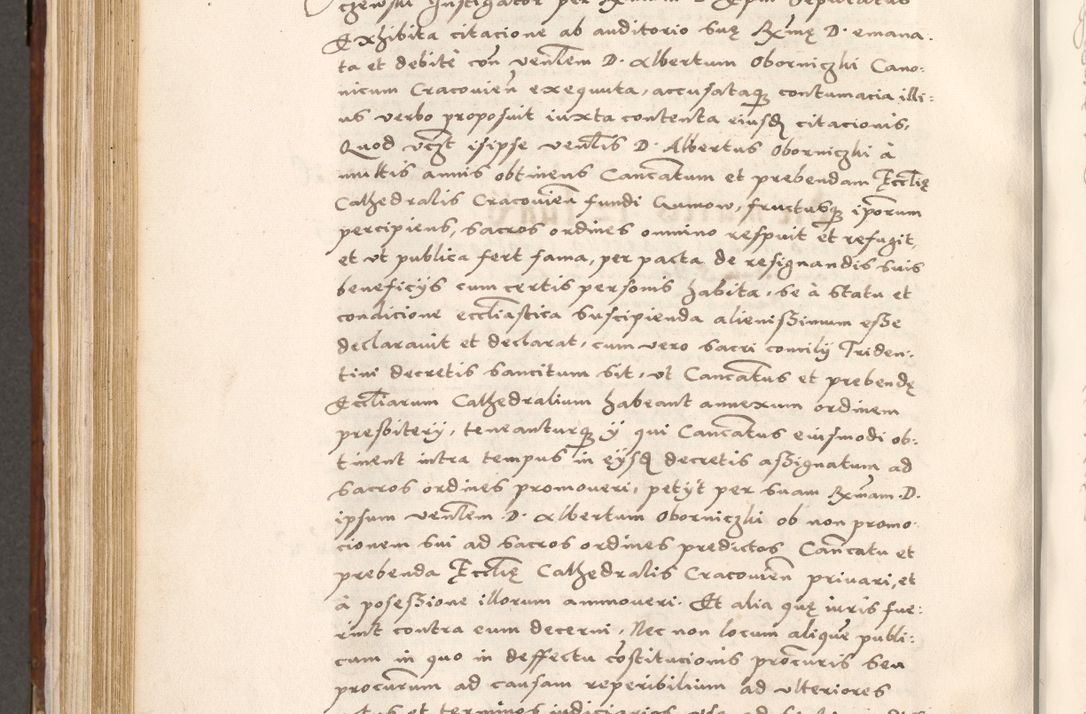 czewski Instigator per Rxmum D. Epm deputatus
Exhibita citacione ab auditorio suę Rxmę D. emana-
ta et debite con venlem D. Albertum Oborniczki Cano-
nicum Cracovien exequuta, accusataq contumacia illi-
us verbo proposuit iuxta contenta eiusd citacionis,
Quod vczt is ipse venlis D. Albertus Oborniczki à
multis annis obtinens Cancatum et prebendam Ecclię
Cathedralis Cracovien fundi Gumow, fructusq iporum
percipiens, sacros ordines omnino respuit et refugit,
et ut publica fert fama, per pacta de resignandis suis
beneficijs cum certis personis habita, se à statu et
condicione eccliastica suscipienda alienißimum eße
declaravit et declarat, cum vero sacri concilij Triden-
tini decretis sancitum sit, ut Cancatus et prebendę
Eccliarum Cathedralium habeant annexum ordinem
presbiterij, teneanturq ij qui Cancatus eiusmodi ob-
tinent intra tempus in eijsd decretis aßignatum ad
sacros ordines promoveri, petijt per suam Rxmam D.
ipsum venlem D. Albertum Oborniczki ob non promo-
cionem sui ad sacros ordines predictos Cancatu et
prebenda Ecclię Cathedralis Cracovien privari, et
à poseßione illorum ammoveri. Et alia quę iuris fue-
rint contra eum decerni, Nec non locum aliquem publi-
cum in quo in deffectu constitucionis procuris seu
procurum ad causam reperibilium ad ulteriores
actus et terminos iudiciarios